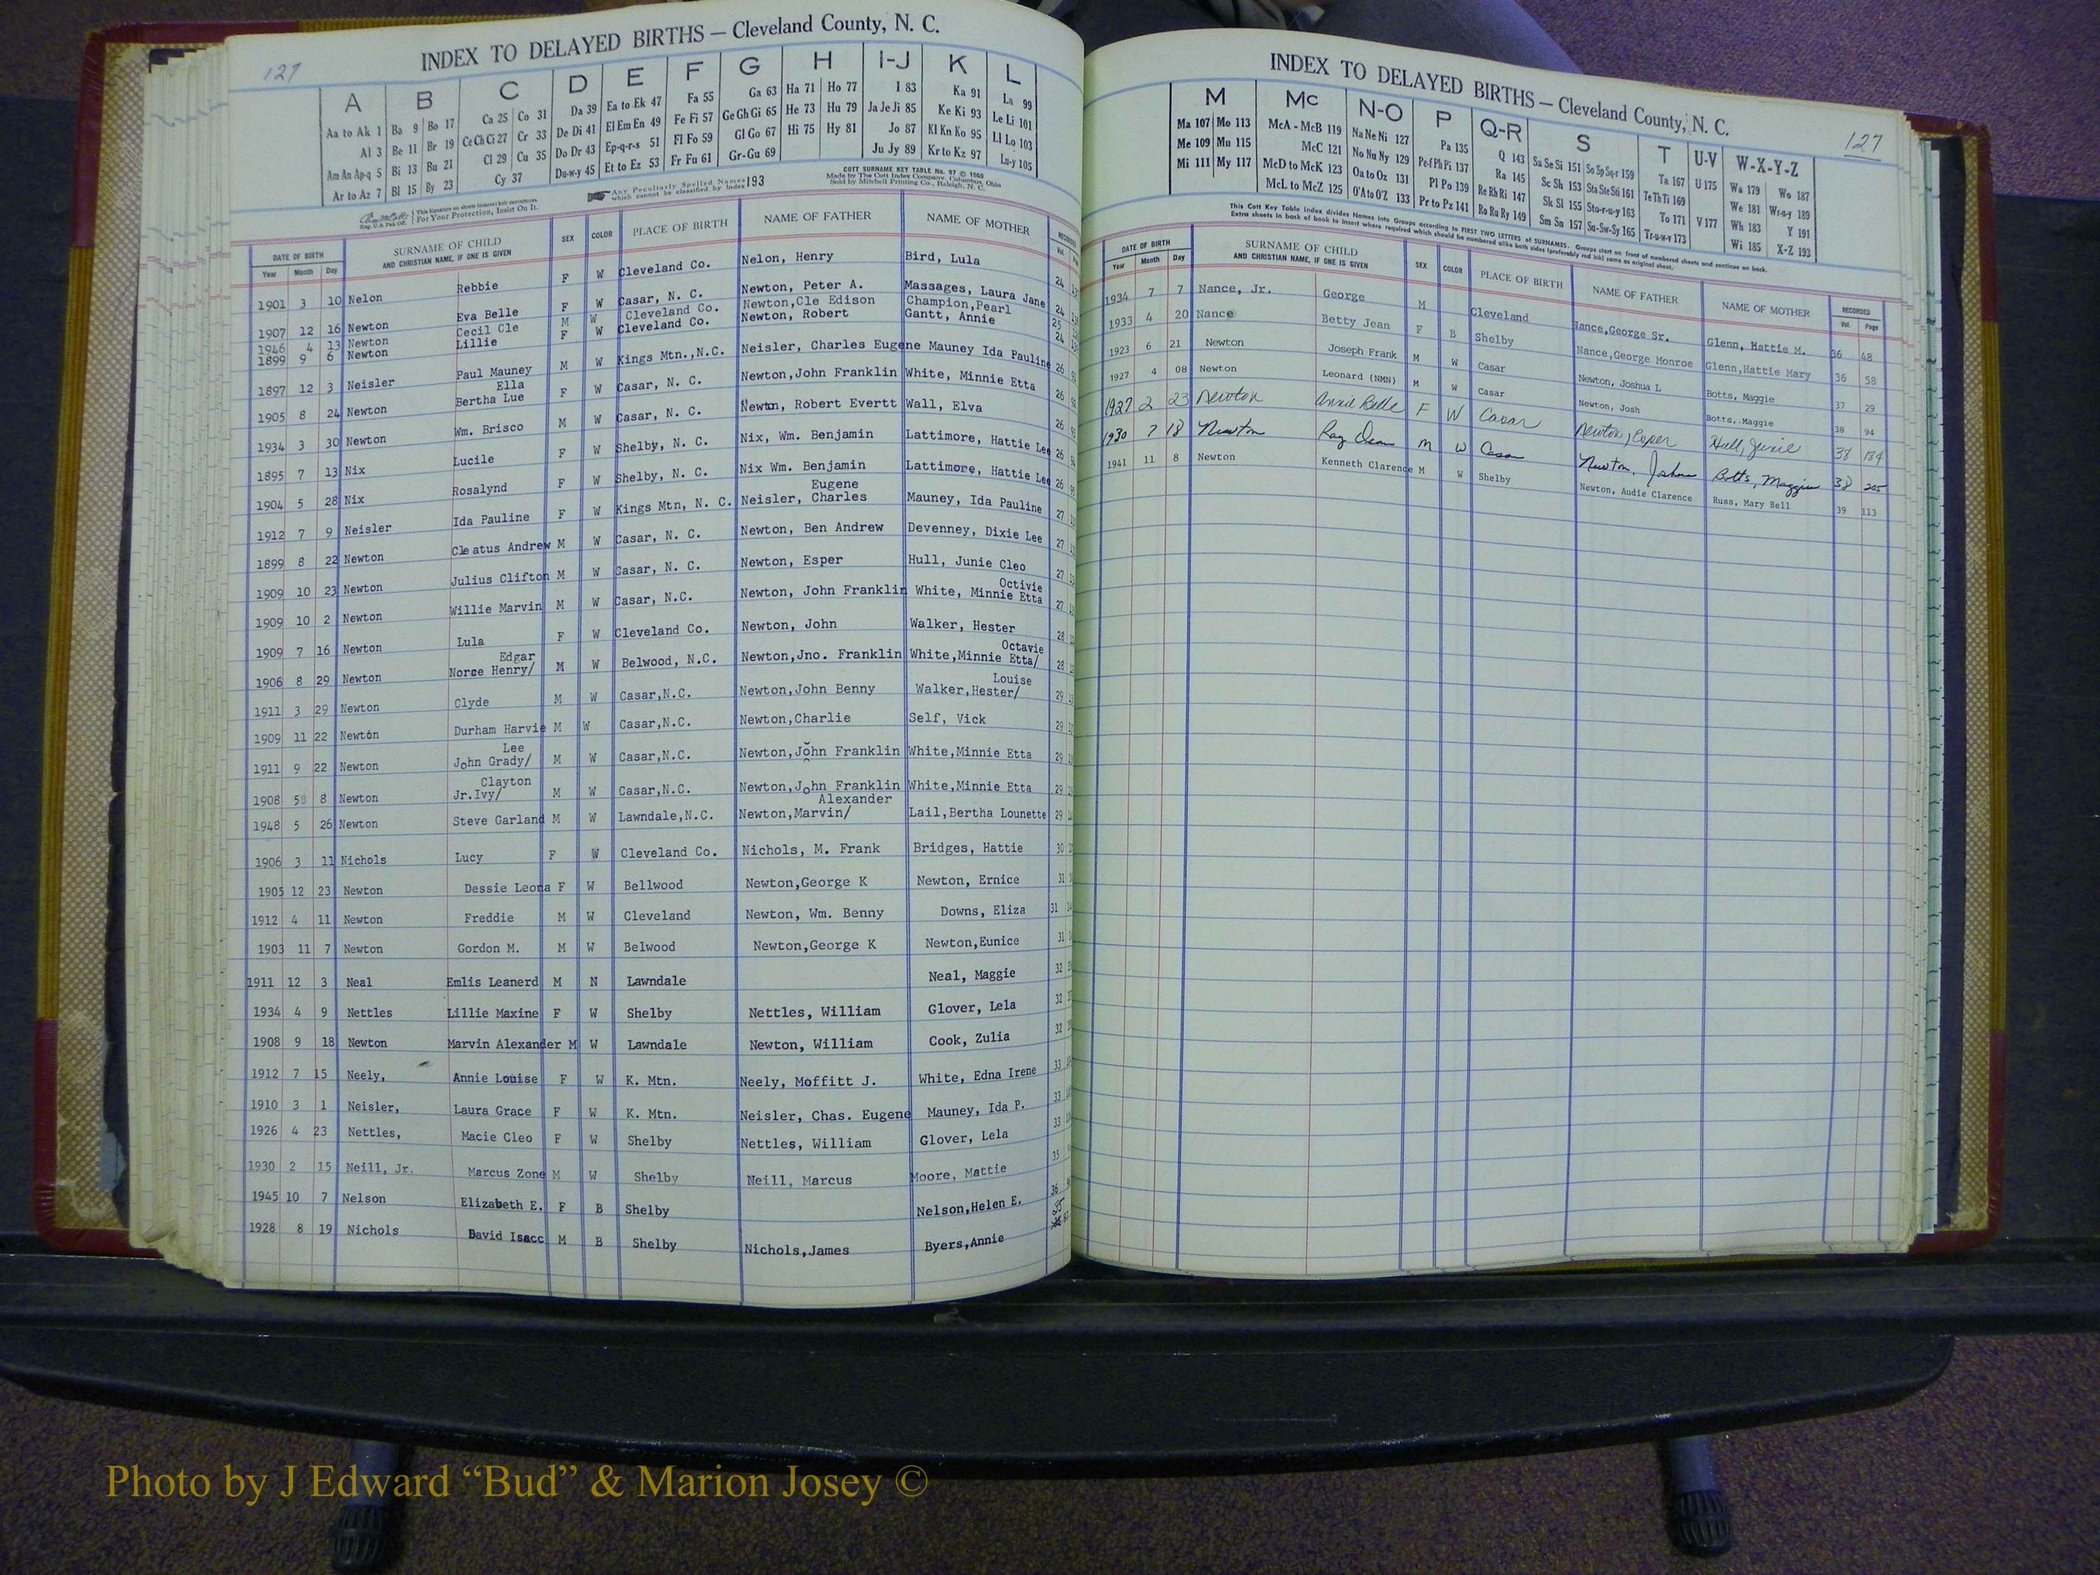 127
INDEX TO DELAYED BIRTHS — Cleveland County, N. C.
A B C D E F G H I-J K L
Aa to Ak 1 Ba 9 Bo 17 Ca 25 Co 31 Da 39 Ea to Ek 47 Fa 55 Ga 63 Ha 71 Ho 77 I 83 Ka 91 La 99
Al 3 Be 11 Br 19 Ce Ch Ci 27 Cr 33 De Di 41 El Em En 49 Fe Fi 57 Ge Gh Gi 65 He 73 Hu 79 Ja Je Ji 85 Ke Ki 93 Le Li 101
Am An Ap-q 5 Bi 13 Bu 21 Cl 29 Cu 35 Do Dr 43 Ep-q-r-s 51 Fl Fo 59 Gl Go 67 Hi 75 Hy 81 Jo 87 Kl Kn Ko 95 Ll Lo 103
Ar to Az 7 Bl 15 By 23 Cy 37 Du-w-y 45 Et to Ez 53 Fr Fu 61 Gr-Gu 69 Ju Jy 89 Kr to Kz 97 Lu-y 105
For Your Protection, Insist On It.
Any Peculiarly Spelled Names which cannot be classified by Index 193
COTT SURNAME KEY TABLE No. 97 © 1960
Made by The Cott Index Company, Columbus, Ohio
Sold by Mitchell Printing Co., Raleigh, N. C.
DATE OF BIRTH SURNAME OF CHILD AND CHRISTIAN NAME, IF ONE IS GIVEN SEX COLOR PLACE OF BIRTH NAME OF FATHER NAME OF MOTHER
Year Month Day
1901 3 10 Nelon Rebbie F W Cleveland Co. Nelon, Henry Bird, Lula 24
1907 12 16 Newton Eva Belle F W Casar, N. C. Newton, Peter A. Massages, Laura Jane 24
1946 4 13 Newton Cecil Cle M W Cleveland Co. Newton,Cle Edison Champion,Pearl 25
1899 9 6 Newton Lillie F W Cleveland Co. Newton, Robert Gantt, Annie 24
1897 12 3 Neisler Paul Mauney M W Kings Mtn.,N.C. Neisler, Charles Eugene Mauney Ida Pauline 26
1905 8 24 Newton Ella Bertha Lue F W Casar, N. C. Newton,John Franklin White, Minnie Etta 26
1934 3 30 Newton Wm. Brisco M W Casar, N. C. Newton, Robert Evertt Wall, Elva 26
1895 7 13 Nix Lucile F W Shelby, N. C. Nix, Wm. Benjamin Lattimore, Hattie Lee 26
1904 5 28 Nix Rosalynd F W Shelby, N. C. Nix Wm. Benjamin Lattimore, Hattie Lee 26
1912 7 9 Neisler Ida Pauline F W Kings Mtn, N. C. Neisler, Charles Eugene Mauney, Ida Pauline 27
1899 8 22 Newton Cleatus Andrew M W Casar, N. C. Newton, Ben Andrew Devenney, Dixie Lee 27
1909 10 23 Newton Julius Clifton M W Casar, N. C. Newton, Esper Hull, Junie Cleo 27
1909 10 2 Newton Willie Marvin M W Casar, N.C. Newton, John Franklin White, Minnie Etta Octivie 27
1909 7 16 Newton Lula F W Cleveland Co. Newton, John Walker, Hester 28
1906 8 29 Newton Norse Henry/ Edgar M W Belwood, N.C. Newton,Jno. Franklin White,Minnie Etta/ Octavie 28
1911 3 29 Newton Clyde M W Casar,N.C. Newton,John Benny Walker,Hester/ Louise 29
1909 11 22 Newton Durham Harvie M W Casar,N.C. Newton,Charlie Self, Vick 29
1911 9 22 Newton John Grady/ Lee M W Casar,N.C. Newton,John Franklin White,Minnie Etta 29
1908 5 8 Newton Jr.Ivy/ Clayton M W Casar,N.C. Newton,John Franklin White,Minnie Etta 29
1948 5 26 Newton Steve Garland M W Lawndale,N.C. Newton,Marvin/ Alexander Lail,Bertha Lounette 29
1906 3 11 Nichols Lucy F W Cleveland Co. Nichols, M. Frank Bridges, Hattie 30
1905 12 23 Newton Dessie Leona F W Bellwood Newton,George K Newton, Ernice 31
1912 4 11 Newton Freddie M W Cleveland Newton, Wm. Benny Downs, Eliza 31
1903 11 7 Newton Gordon M. M W Belwood Newton,George K Newton,Eunice 31
1911 12 3 Neal Emlis Leanerd M N Lawndale Neal, Maggie 32
1934 4 9 Nettles Lillie Maxine F W Shelby Nettles, William Glover, Lela 32
1908 9 18 Newton Marvin Alexander M W Lawndale Newton, William Cook, Zulia 32
1912 7 15 Neely, Annie Louise F W K. Mtn. Neely, Moffitt J. White, Edna Irene 33
1910 3 1 Neisler, Laura Grace F W K. Mtn. Neisler, Chas. Eugene Mauney, Ida P. 33
1926 4 23 Nettles, Macie Cleo F W Shelby Nettles, William Glover, Lela 33
1930 2 15 Neill, Jr. Marcus Zone M W Shelby Neill, Marcus Moore, Mattie 35
1945 10 7 Nelson Elizabeth E. F B Shelby Nelson,Helen E. 36
1928 8 19 Nichols David Isacc M B Shelby Nichols,James Byers,Annie 35
INDEX TO DELAYED BIRTHS — Cleveland County, N. C.
127
M Mc N-O P Q-R S T U-V W-X-Y-Z
Ma 107 Mo 113 McA - McB 119 Na Ne Ni 127 Pa 135 Q 143 Sa Se Si 151 So Sp Sq-r 159 Ta 167 U 175 Wa 179 Wo 187
Me 109 Mu 115 McC 121 No Nu Ny 129 Pe-f Ph Pi 137 Ra 145 Sc Sh 153 Sta Ste Sti 161 Te Th Ti 169 We 181 Wr-u-y 189
Mi 111 My 117 McD to McK 123 Oa to Oz 131 Pl Po 139 Re Rh Ri 147 Sk Sl 155 Sto-r-u-y 163 To 171 V 177 Wh 183 Y 191
McL to McZ 125 O'A to O'Z 133 Pr to Pz 141 Ro Ru Ry 149 Sm Sn 157 Su-Sw-Sy 165 Tr-u-w-y 173 Wi 185 X-Z 193
This Cott Key Table Index divides Names into Groups according to FIRST TWO LETTERS of SURNAMES. Groups start on front of numbered sheets and continue on back.
Extra sheets in back of book to insert where required which should be numbered alike both sides (preferably red ink) same as original sheet.
DATE OF BIRTH SURNAME OF CHILD AND CHRISTIAN NAME, IF ONE IS GIVEN SEX COLOR PLACE OF BIRTH NAME OF FATHER NAME OF MOTHER RECORDED
Year Month Day Vol. Page
1934 7 7 Nance, Jr. George M Cleveland Nance,George Sr. Glenn, Hattie M. 36 48
1933 4 20 Nance Betty Jean F B Shelby Nance,George Monroe Glenn,Hattie Mary 36 58
1923 6 21 Newton Joseph Frank M W Casar Newton, Joshua L Botts, Maggie 37 29
1927 4 08 Newton Leonard (NMN) M W Casar Newton, Josh Botts, Maggie 38 94
1927 2 23 Newton Annie Belle F W Casar Newton, Esper Hull, Junie 38 184
1930 7 18 Newton Ray Dean M W Casar Newton, Joshua Botts, Maggie 38 205
1941 11 8 Newton Kenneth Clarence M W Shelby Newton, Audie Clarence Russ, Mary Bell 39 113
Photo by J Edward “Bud” & Marion Josey ©